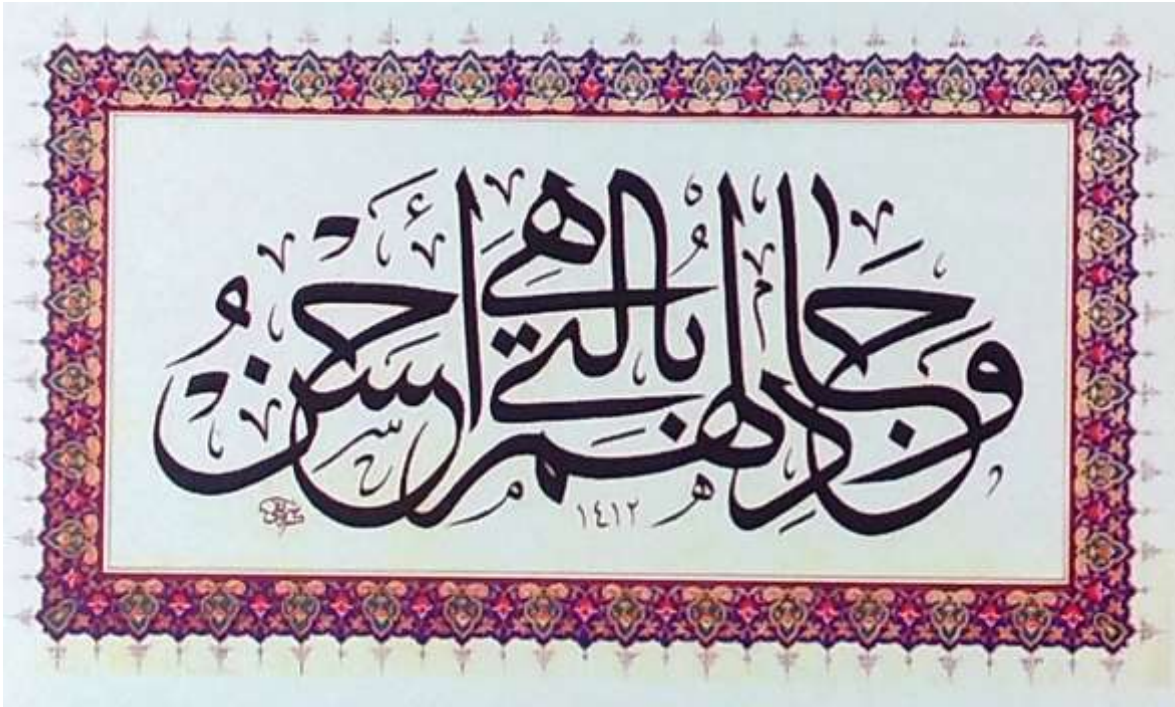 وَجَادِلْهُم بِالَّتِي هِيَ أَحْسَنُ
١٤١٢